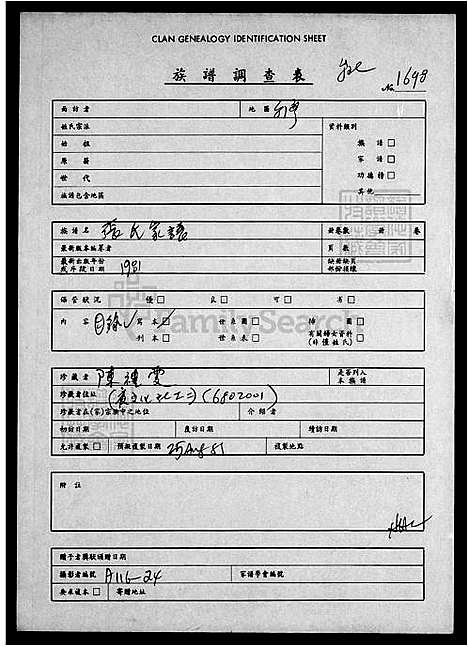 CLAN GENEALOGY IDENTIFICATION SHEET
族譜調查表
No 1698
面訪者 地區 台灣
姓氏宗派 資料類別
始祖 族譜 □
原籍 家譜 □
世代 功德榜 □
族譜包含地區 其他
族譜名 張氏家譜 冊卷數 冊 卷
最新版本編纂者 頁數
最新出版年份 缺冊缺頁
或手段日期 1981 部份損壞
保管狀況 優 □ 良 □ 可 □ 劣 □
內容 目錄 寫本 □ 世系圖 □ 插圖 □
刊本 □ 世系表 □ 有關婦女資料
(非僅姓氏) □
珍藏者 是否列入
本族譜
珍藏者住址 (6802001)
珍藏者在(家)宗族中之地位 介紹者
初訪日期 復訪日期 續訪日期
允許複製 □ 預擬複製日期 25 Aug 81 複製地點
附註
贈予者獎狀頒贈日期
攝影者編號 A116-24 家譜學會編號
要求複本 □ 寄贈地址
FamilySearch